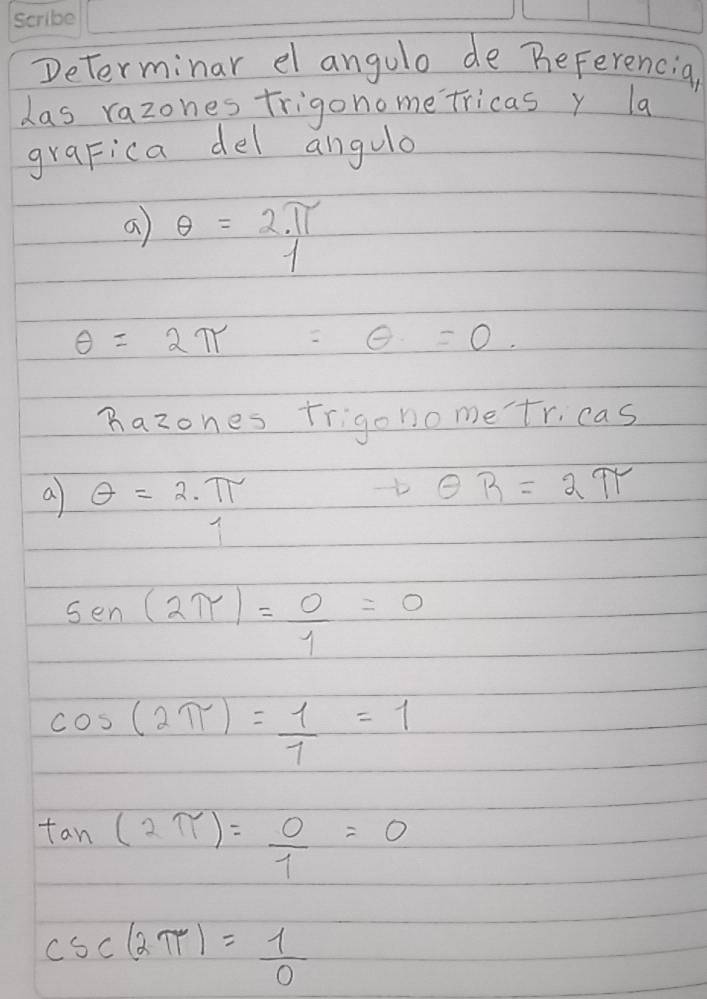 Scribe
Determinar el angulo de Referencia,
Las razones trigonometricas y la
grafica del angulo
a) θ = 2.π/1
θ = 2π = θ = 0.
Razones trigonométricas
a) θ = 2.π/1 → θR = 2π
sen (2π) = 0/1 = 0
cos (2π) = 1/1 = 1
tan (2π) = 0/1 = 0
csc (2π) = 1/0